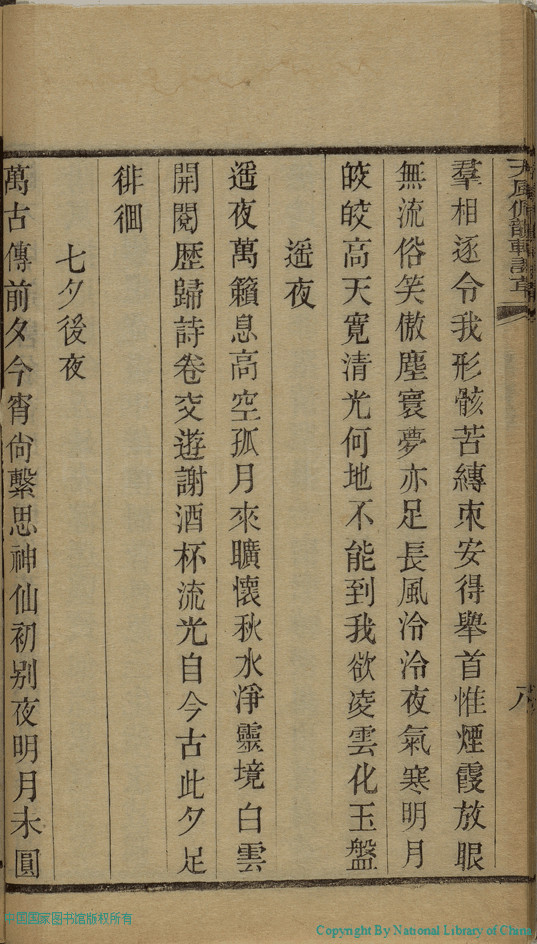 羣相逐令我形骸苦縳束安得舉首惟煙霞放眼
無流俗笑傲塵寰夢亦足長風泠泠夜氣寒明月
皎皎高天寬清光何地不能到我欲凌雲化玉盤
遥夜
遥夜萬籟息高空孤月來曠懷秋水淨靈境白雲
開閱歷歸詩卷交遊謝酒杯流光自今古此夕足
徘徊
七夕後夜
萬古傳前夕今宵尙繫思神仙初别夜明月未圓
八
国国家图书馆版权所有
Copyright By National Library of China